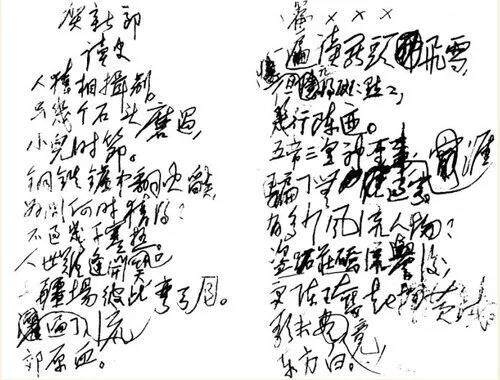 贺新郎
读史
人猿相揖别。
只幾个石头磨过,
小儿时节。
铜铁炉中翻火焰,
为问何时猜得?
不过幾千寒热。
人世难逢開口笑
疆場彼此弯弓月。
流遍了,
郊原血。
篇×××
一篇读罷頭飛雪,
但记得斑斑点点,
幾行陈迹。
五帝三皇神圣事,
骗了無涯过客。
有多少风流人物?
盗跖莊蹻流誉後,
更陈王奮起挥黄钺。
歌未竟,
东方白。